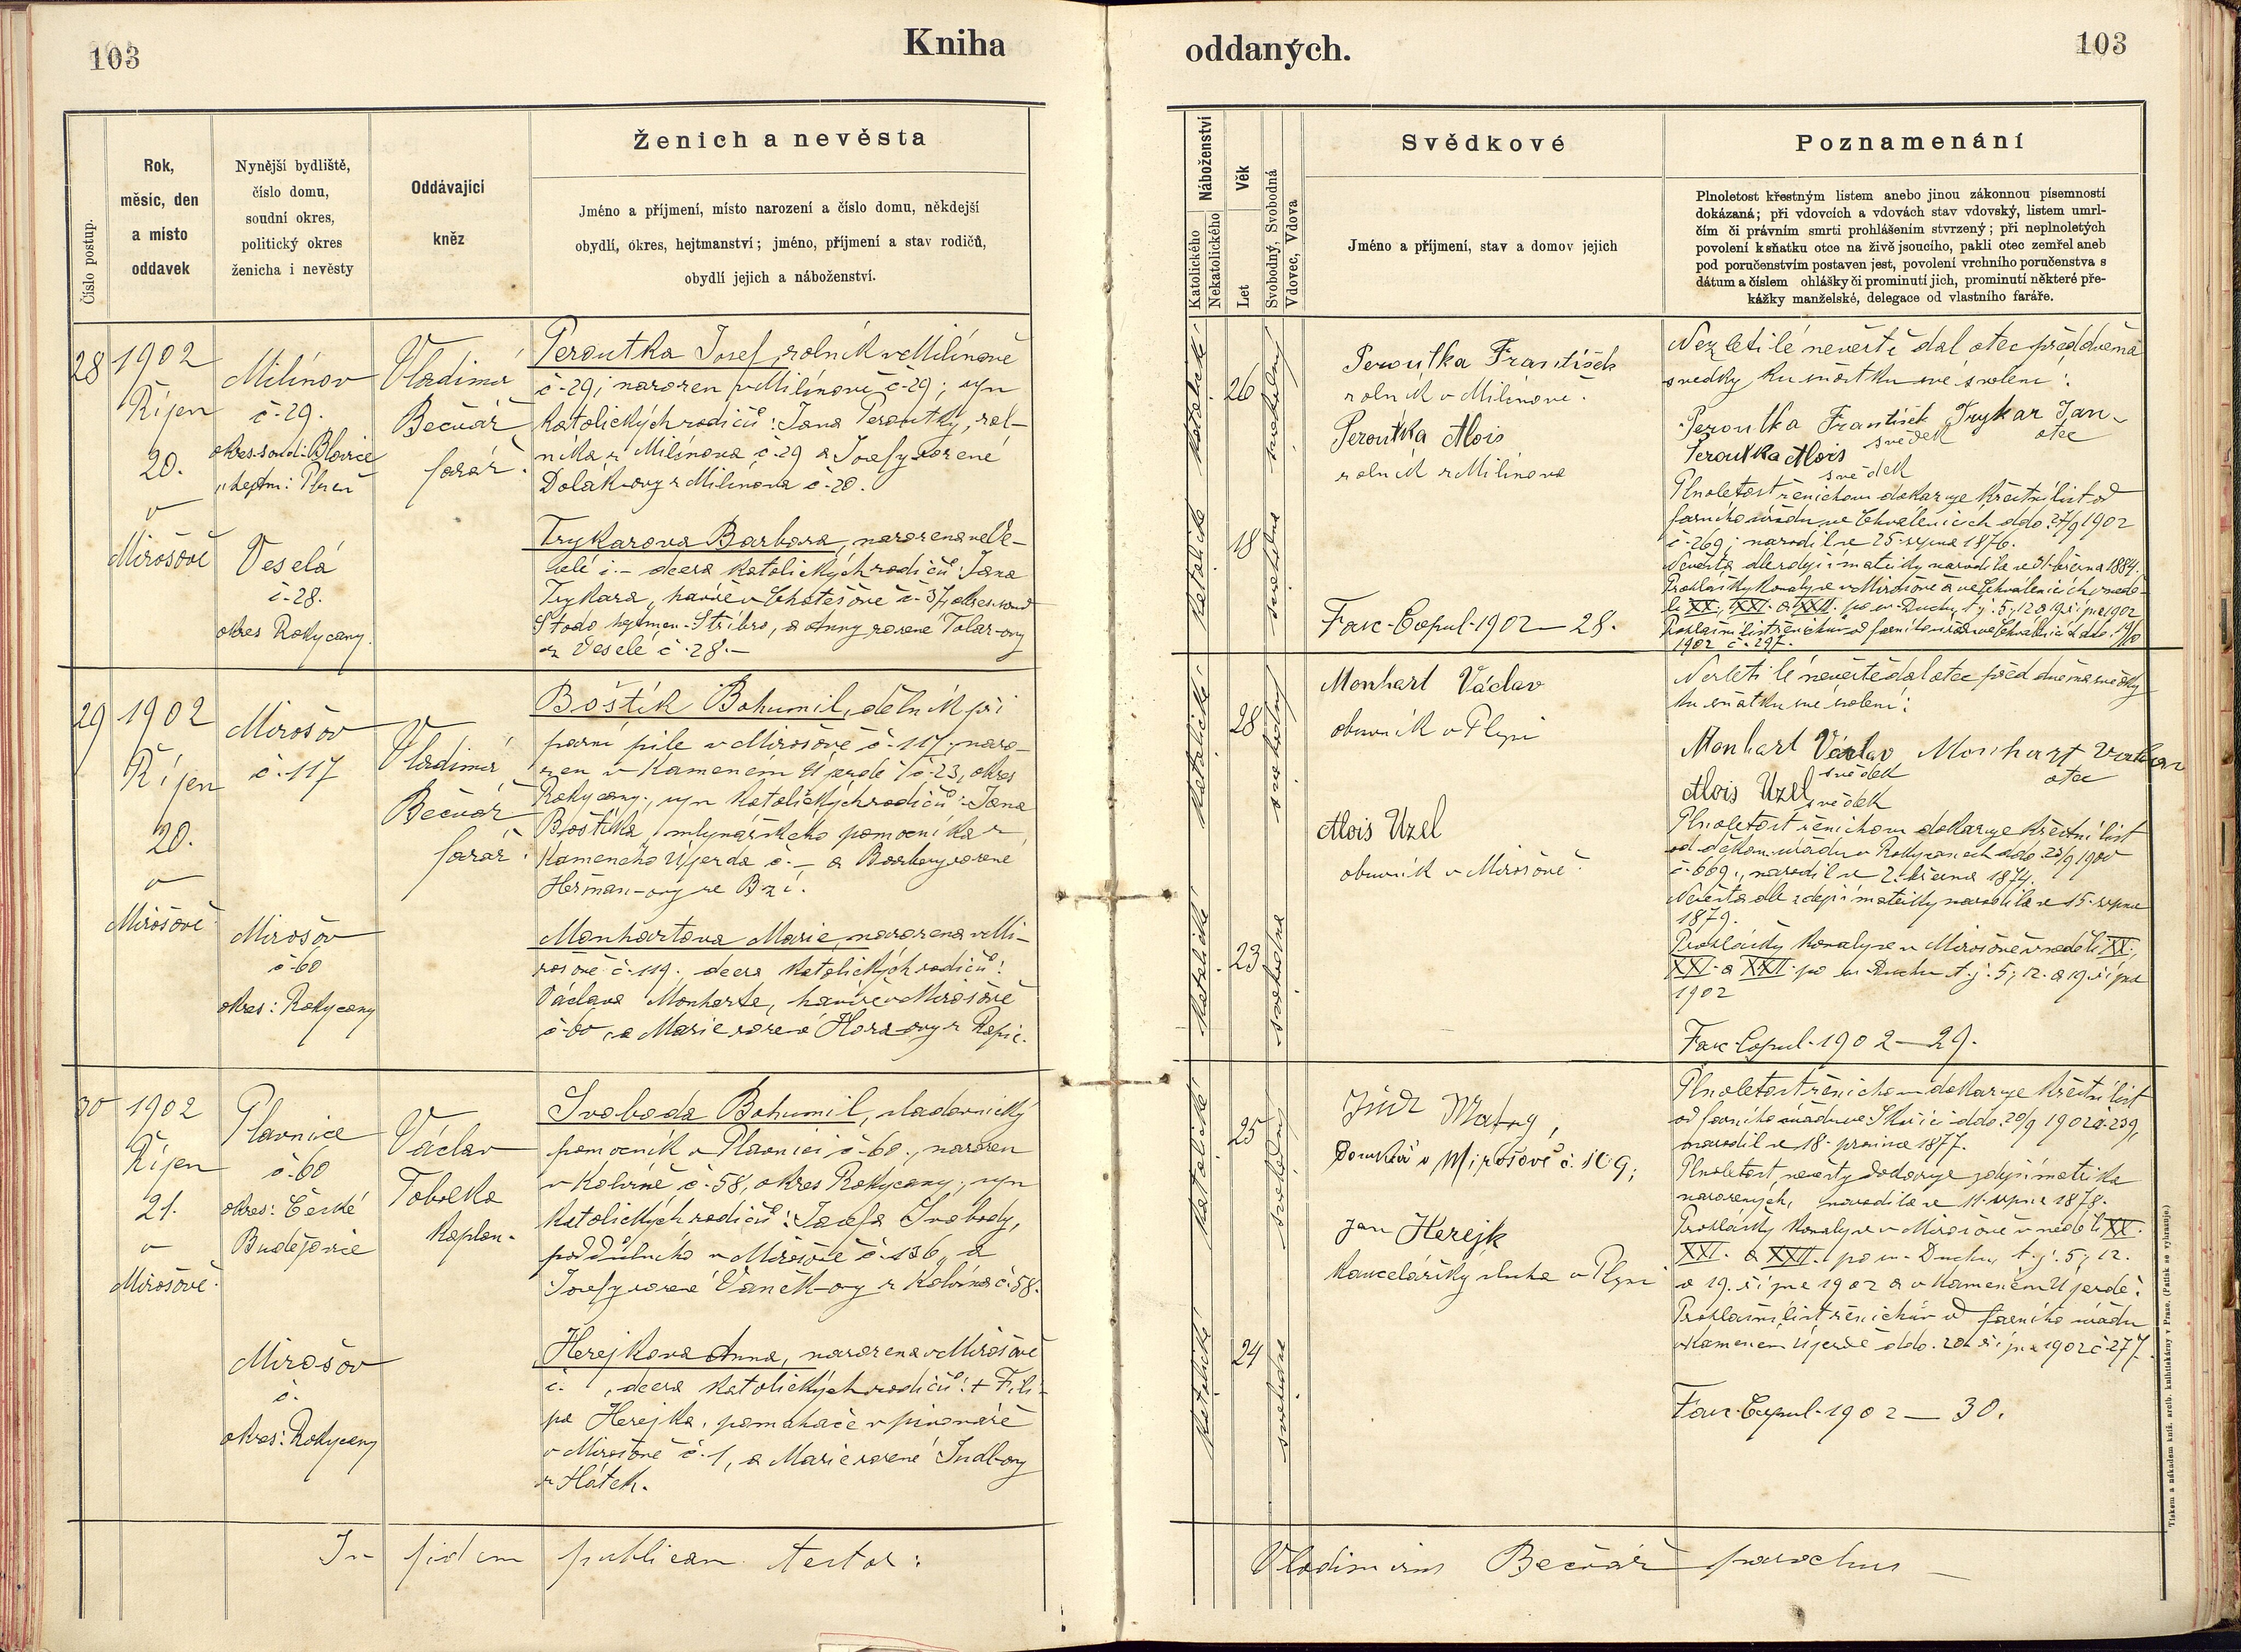 103
Kniha
oddaných.
103
Číslo postup.
Rok,
měsíc, den
a místo
oddavek
Nynější bydliště,
číslo domu,
soudní okres,
politický okres
ženicha i nevěsty
Oddávající
kněz
Ženich a nevěsta
Jméno a příjmení, místo narození a číslo domu, někdejší
obydlí, okres, hejtmanství; jméno, příjmení a stav rodičů,
obydlí jejich a náboženství.
28
1902
Říjen
20.
v
Mirošově
Milínov
č. 29.
okres. soud: Blovice
" hejtm: Plzeň
Veselá
č. 28.
okres Rokycany.
Vladimír
Bečvář
farář.
Peroutka Josef, rolník v Milínově
č. 29; narozen v Milínově č. 29; syn
katolických rodičů: Jana Peroutky, rol-
níka z Milínova č. 29 a Josefy rozené
Dolák-ovy z Milínova č. 20.
Trykarova Barbora, narozena ve Ve-
selé č. — dcera katolických rodičů: Jana
Trykara, havíře v Chotěšově č. 37, okres. soud
Stodo hejtman. Stříbro, a Anny rozené Tolar-ovy
z Veselé č. 28. —
29
1902
Říjen
20.
v
Mirošově
Mirošov
č. 117
Mirošov
č. 60
okres: Rokycany
Vladimír
Bečvář
farář.
Boštík Bohumil, dělník při
parní pile v Mirošově č. 117, naro-
zen v Kameném Újezdě č. 23, okres
Rokycany, syn katolických rodičů: Jana
Boštíka, mlynářského pomocníka z
Kameného Újezda č. — a Barbory rozené
Heřman-ovy ze Bzí.
Monhartova Marie, narozena v Mi-
rošově č. 119., dcera katolických rodičů:
Václava Monharta, havíře v Mirošově
č. 60, a Marie rozené Hora-ovy z
30
1902
Říjen
21.
v
Mirošově.
Plavnice
č. 60
okres: České
Budějovice
Mirošov
č.
okres: Rokycany
Václav
Tobolka
kaplan.
Svoboda Bohumil, sladovnický
pomocník v Plavnici č. 60., narozen
v Kolvíně č. 58, okres Rokycany, syn
katolických rodičů: Josefa Svobody,
poddůlního v Mirošově č. 136, a
Josefy rozené Vaněk-ovy z Kolvína č. 58.
Herejkova Anna, narozena v Mirošově
č. , dcera katolických rodičů: + Fili-
pa Herejka, pomahače v pivovaře
v Mirošově č. 1, a Marie rozené
z Hátek.
In fidem publicam testor:
Náboženství
Katolického
Nekatolického
Věk
Let
Svobodný, Svobodná
Vdovec, Vdova
Svědkové
Jméno a příjmení, stav a domov jejich
Poznamenání
Plnoletost křestným listem anebo jinou zákonnou písemností
dokázaná; při vdovcích a vdovách stav vdovský, listem umrl-
čím či právním smrti prohlášením stvrzený; při neplnoletých
povolení k sňatku otce na živě jsoucího, pakli otec zemřel aneb
pod poručenstvím postaven jest, povolení vrchního poručenstva s
dátum a číslem ohlášky či prominutí jich, prominutí některé pře-
kážky manželské, delegace od vlastního faráře.
katolické
26
svobodný
katolické
18
svobodná
Peroutka František
rolník v Milínově.
Peroutka Alois
rolník z Milínova
Fasc. Copul. 1902 — 28.
Nezletilé nevěstě dal otec před dvěma
svědky ku sňatku své svolení:
Peroutka František Trykar Jan
svědek otec
Peroutka Alois
svědek
Plnoletost ženichovu dokazuje křestní list od
farního úřadu ve Chválenicích ddo. 27/9 1902
č. 269; narodil se 25. srpna 1876.
Nevěsta dle zdejší matriky narodila se 31. března 1884.
Prohlášky konaly se v Mirošově a ve Chválenicích v nedě-
li XX., XXI. a XXII. po sv. Duchu, t. j. 5., 12. a 19. října 1902
Prohlašní list ženichův od farního úřadu ve Chválenicích ddo. 19/10
1902 č. 297.
katolické
28
svobodný
katolické
23
svobodná
Monhart Václav
obuvník v Plzni
Alois Uzel
obuvník v Mirošově.
Nezletilé nevěstě dal otec před dvěma svědky
ku sňatku své svolení:
Monhart Václav Monhart Vaclav
svědek otec
Alois Uzel
svědek
Plnoletost ženichovu dokazuje křestní list
od děkan. úřadu v Rokycanech ddo. 23/9 1900
č. 669., narodil se 2. března 1874.
Nevěsta dle zdejší matriky narodila se 15. srpna
1879.
Prohlášky konaly se v Mirošově v neděli XX.,
XXI. a XXII. po sv. Duchu t. j. 5., 12. a 19. října
1902
Fasc. Copul. 1902 — 29.
katolické
25
svobodný
katolické
24
svobodná
Matný,
v Mirošově č. 169;
Jan Herejk
kancelářský sluha v Plzni
Plnoletost ženichovu dokazuje křestní list
od farního úřadu ve Skořici ddo. 20/9 1902 č. 239,
narodil se 18. prosince 1877.
Plnoletost nevěsty dokazuje zdejší matrika
narozených, narodila se 11. srpna 1878.
Prohlášky konaly se v Mirošově v neděli XX.
XXI. a XXII. po sv. Duchu, t. j. 5., 12.
a 19. října 1902 a v Kameném Újezdě.
Prohlašní list ženichův od farního úřadu
v Kameném Újezdě ddo. 20. října 1902 č. 277.
Fasc. Copul. 1902 — 30.
Vladimirus Bečvář parochus
Tiskem a nákladem kníž. arcib. knihtiskárny v Praze. (Patisk se vyhrazuje.)